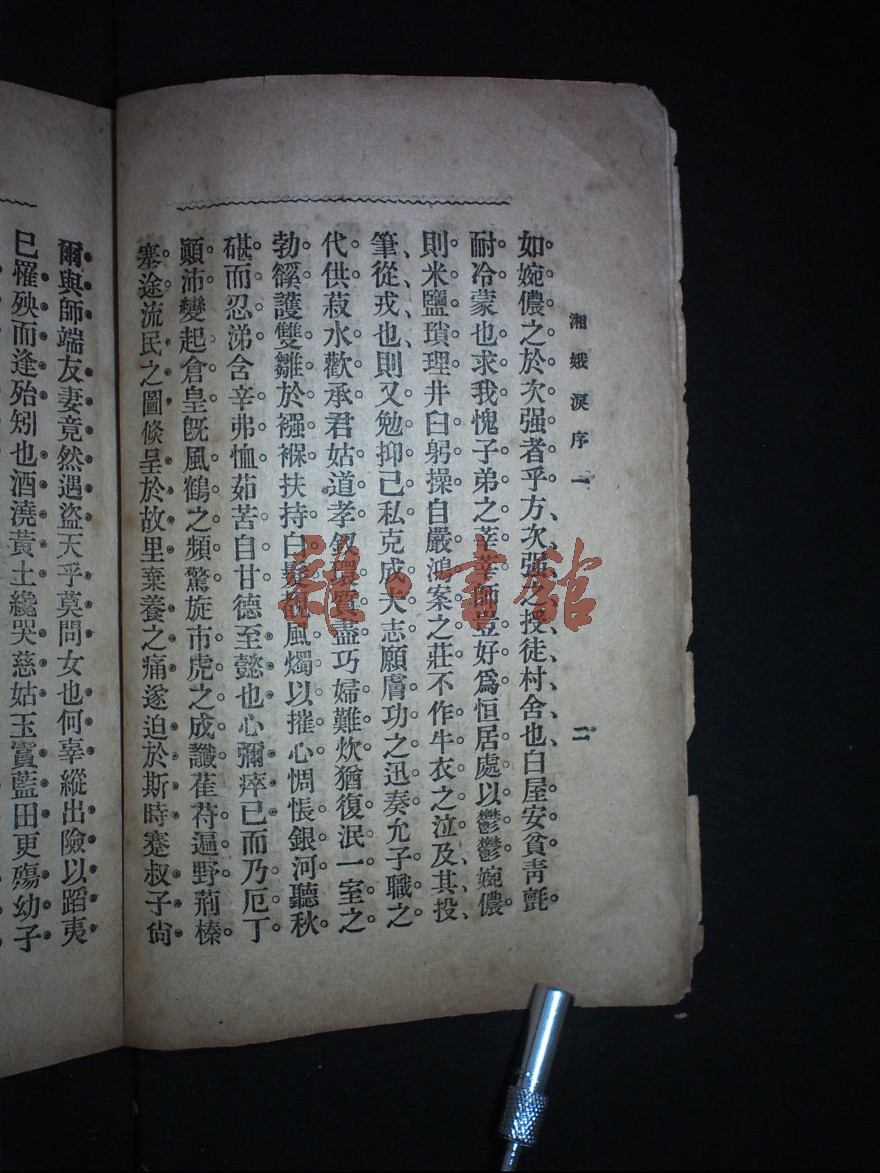 湘娥淚序一
二
如婉儂之於次强者乎方次强之授徒村舍也白屋安貧靑氈
耐冷蒙也求我愧子弟之莘莘師豈好爲恒居處以鬱鬱婉儂
則米鹽瑣理井臼躬操自嚴鴻案之莊不作牛衣之泣及其投
筆從戎也則又勉抑己私克成夫志願膚功之迅奏允子職之
代供菽水歡承君姑道孝釵環質盡巧婦難炊猶復泯一室之
勃谿護雙雛於襁褓扶持白髮風燭以摧心惆悵銀河聽秋
碪而忍涕含辛弗恤茹苦自甘德至懿也心彌瘁已而乃厄丁
顚沛變起倉皇旣風鶴之頻驚旋市虎之成讖萑苻遍野荊榛
塞途流民之圖倏呈於故里棄養之痛遂迫於斯時蹇叔子尙
爾與師端友妻竟然遇盜天乎莫問女也何辜縱出險以蹈夷
巳罹殃而逢殆矧也酒澆黃土纔哭慈姑玉實藍田更殤幼子
龍書館